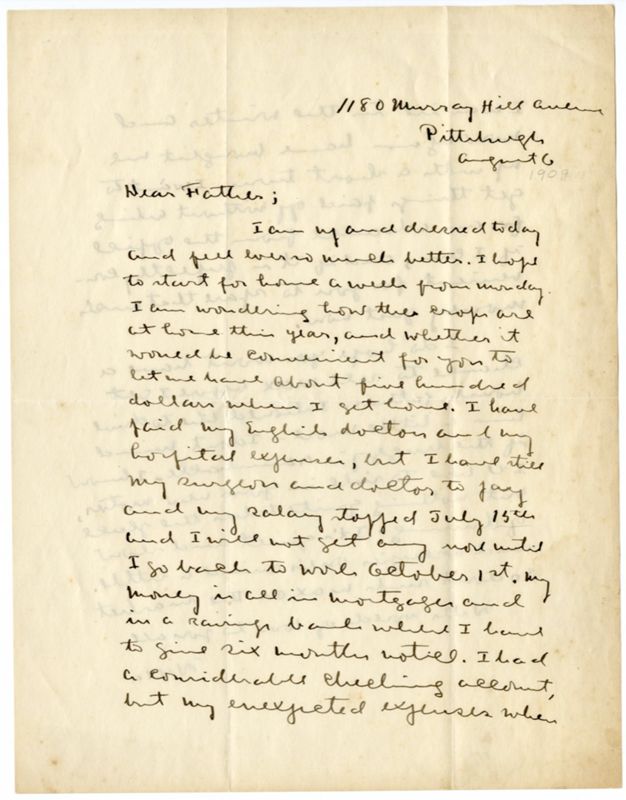 1180 Murray Hill Avenue
Pittsburgh
August 6
1909
Dear Father;
I am up and dressed today
and feel ever so much better. I hope
to start for home a week from Monday.
I am wondering how the crops are
at home this year, and whether it
would be convenient for you to
let me have about five hundred
dollars when I get home. I have
paid my English doctors and my
hospital expenses, but I have still
my surgeon and doctor to pay
and my salary stopped July 15th
and I will not get any more until
I go back to work October 1st. My
money is all in mortgages and
in a savings bank where I have
to give six months notice. I had
a considerable checking account,
but my unexpected expenses when